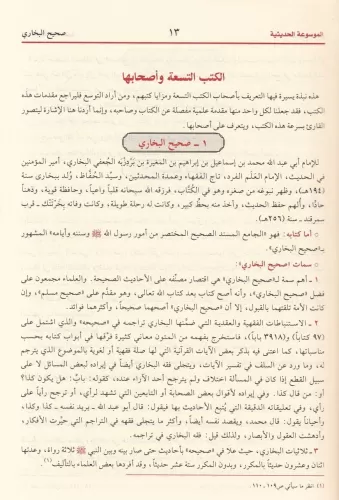 الموسوعة الحديثية
١٣
صحيح البخاري
الكتب التسعة وأصحابها
هذه نبذة يسيرة فيها التعريف بأصحاب الكتب التسعة ومزايا كتبهم، ومن أراد التوسع فليراجع مقدمات هذه
الكتب، فقد جعلنا لكل واحد منها مقدمة علمية مفصلة عن الكتاب وصاحبه، وإنما أردنا هنا الإشارة ليتصور
القارئ بسرعة هذه الكتب، ويتعرف على أصحابها.
١ - صحيح البخاري
للإمام أبي عبد الله محمد بن إسماعيل بن إبراهيم بن المغيرة بن بردزبه الجُعفي البخاري، أمير المؤمنين
في الحديث، الإمام العلم الفرد، تاج الفقهاء وعمدة المحدثين، وسيد الحُفَّاظ، وُلد ببخارى سنة
(١٩٤هـ)، وظهر نبوغه من صغره وهو في الكُتَّاب، فرزقه الله سبحانه قلباً واعياً، وحافظة قوية، وذهناً
حادًّا، وأُلهم حفظ الحديث، وأخذ منه بحظٍّ كبير، وكانت له رحلة طويلة، وكانت وفاته بِخَرْتَنْك - قرب
سمرقند - سنة (٢٥٦هـ).
○ أما كتابه: فهو «الجامع المسند الصحيح المختصر من أمور رسول الله ﷺ وسننه وأيامه» المشهور
بـ«صحيح البخاري».
○ سمات «صحيح البخاري»:
١ - أهم سمة لـ«صحيح البخاري» هي اقتصار مصنِّفه على الأحاديث الصحيحة. والعلماء مجمعون على
فضل «صحيح البخاري»، وأنه أصح كتاب بعد كتاب الله تعالى، وهو مقدَّم على «صحيح مسلم»، وإن
كانت الأمة تلقتهما بالقبول، إلا أن «صحيح البخاري» أصحهما صحيحاً، وأكثرهما فوائد.
٢ - الاستنباطات الفقهية والعقدية التي ضمَّنها البخاري تراجمه في «صحيحه» والذي اشتمل على
(٩٧ كتاباً) و(٣٩١٨ باباً)، فاستخرج بفهمه من المتون معاني كثيرة فرَّقها في أبواب كتابه بحسب
مناسباتها، كما اعتنى فيه بذكر بعض الآيات القرآنية التي لها صلة فقهية أو لغوية بالموضوع الذي يترجم
له، وما ورد عن السلف في تفسير الآيات، ويتجلى فقه البخاري أيضاً في إيراده لبعض المسائل لا على
سبيل القطع إذا كان في المسألة اختلاف ولم يترجح أحد الآراء عنده، كقوله: باب: هل يكون كذا؟
أو: من قال كذا. وفي إيراده لأقوال بعض الصحابة أو التابعين التي تشهد لرأي، أو ترجح رأياً على
رأي، وفي تعليقاته الدقيقة التي يُتبع الأحاديث بها فيقول: قال أبو عبد الله - يريد نفسه - كذا وكذا،
وأحياناً يقول: قال محمد، ويقصد نفسه أيضاً، وأكثر ما يتجلى فقهه في التراجم التي حيَّرت الأفكار،
وأدهشت العقول والأبصار، ولذا قيل: فقه البخاري في تراجمه.
٣ - ثلاثيات البخاري، حيث علا في «صحيحه» بأحاديث حتى صار بينه وبين النبي ﷺ ثلاثة رواة، وعدتها
اثنان وعشرون حديثاً بالمكرر، وبدون المكرر ستة عشر حديثاً، وقد أفردها بعض العلماء بالتأليف(١).
(١) انظر ما سيأتي ص١٠٩، ١١٠.